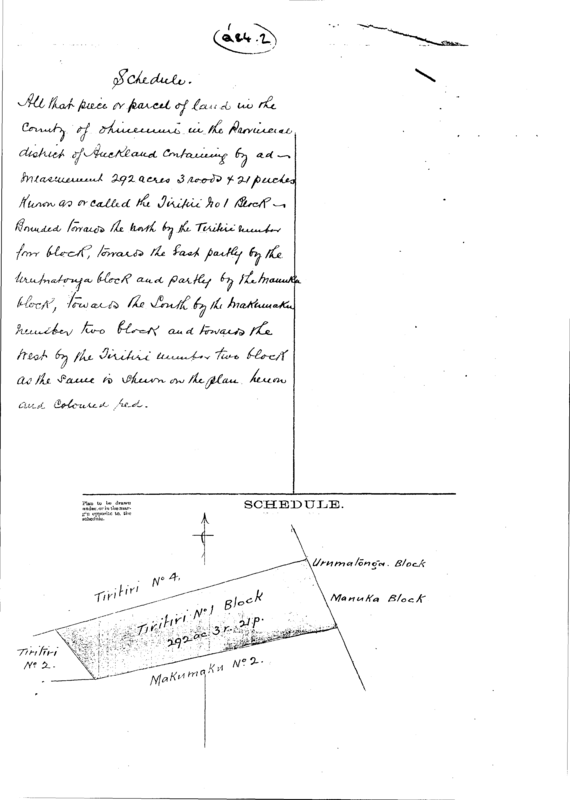 a24.2
Schedule.
All that piece or parcel of land in the
County of Ohinemuri in the Provincial
district of Auckland Containing by ad-
measurement 292 acres 3 roods & 21 perches
Known as or called the Tiritiri No 1 Block -
Bounded towards the North by the Tiritiri number
four block, towards the East partly by the
Urumatonga block and partly by the Manuka
block, towards the South by the Makumaku
number two block and towards the
West by the Tiritiri number two block
as the same is shewn on the plan hereon
and coloured red.
Plan to be drawn
under or in the mar-
gin opposite to the
schedule.
SCHEDULE.
Urumatonga. Block
Tiritiri No 4.
Manuka Block
Tiritiri No 1 Block
292 ac. 3 r. 21 p.
Tiritiri
No 2.
Makumaku No 2.